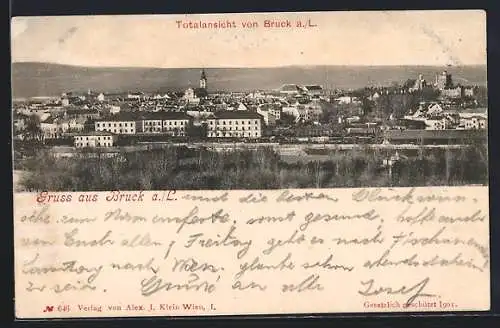 Totalansicht von Bruck a./L.
Gruss aus Bruck a./L. und die besten Glückwün-
sche zum Namensfeste, sonst gesund, hoffe auch
von Euch allen, Freitag geht es nach Fischamend
Samstag nach Wien, glaube schon abends daheim
zu sein. Grüße an alle Josef
No 646 Verlag von Alex. J. Klein Wien, I. Gesetzlich geschützt 1901.